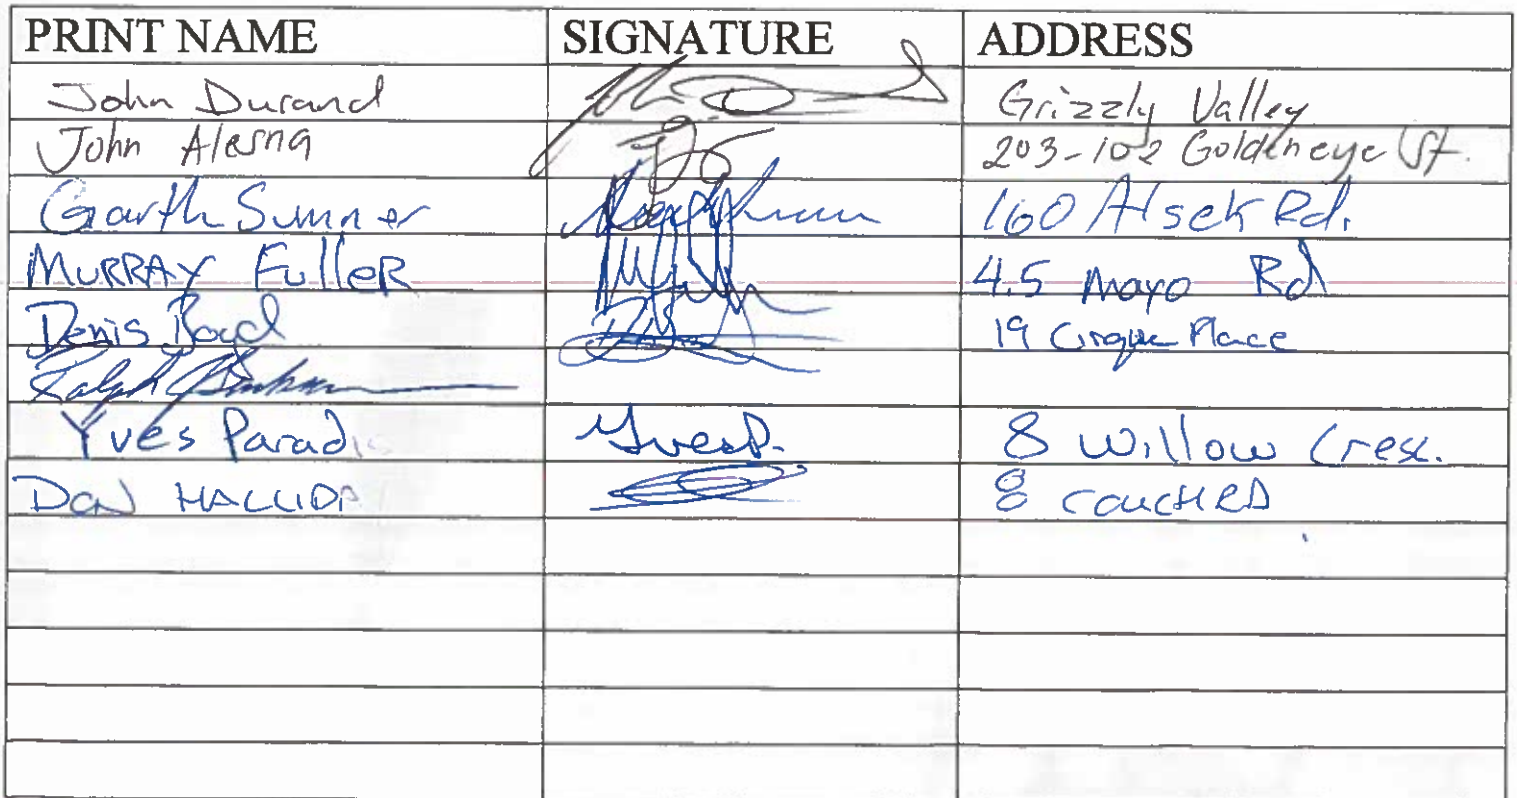 PRINT NAME SIGNATURE ADDRESS
John Durand Grizzly Valley
John Alesna 203-102 Goldeneye St.
Garth Sumner 160 Alsek Rd.
MURRAY FulleR 4.5 Mayo Rd
Denis 19 Cirque Place
Ralph
Yves Paradi YvesP. 8 Willow Cresc.
DON HALLIDA 8